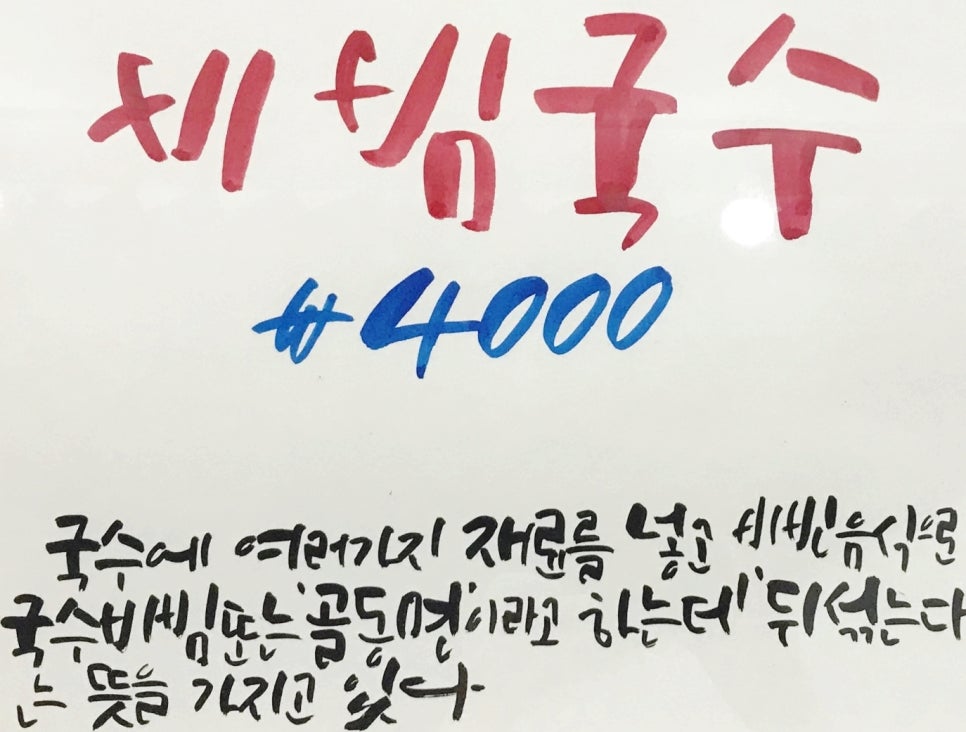 비빔국수
₩4000
국수에 여러가지 재료를 넣고 비빈음식으로
국수비빔또는'골동면'이라고 하는데 '뒤섞는다
는 뜻을 가지고 있다.